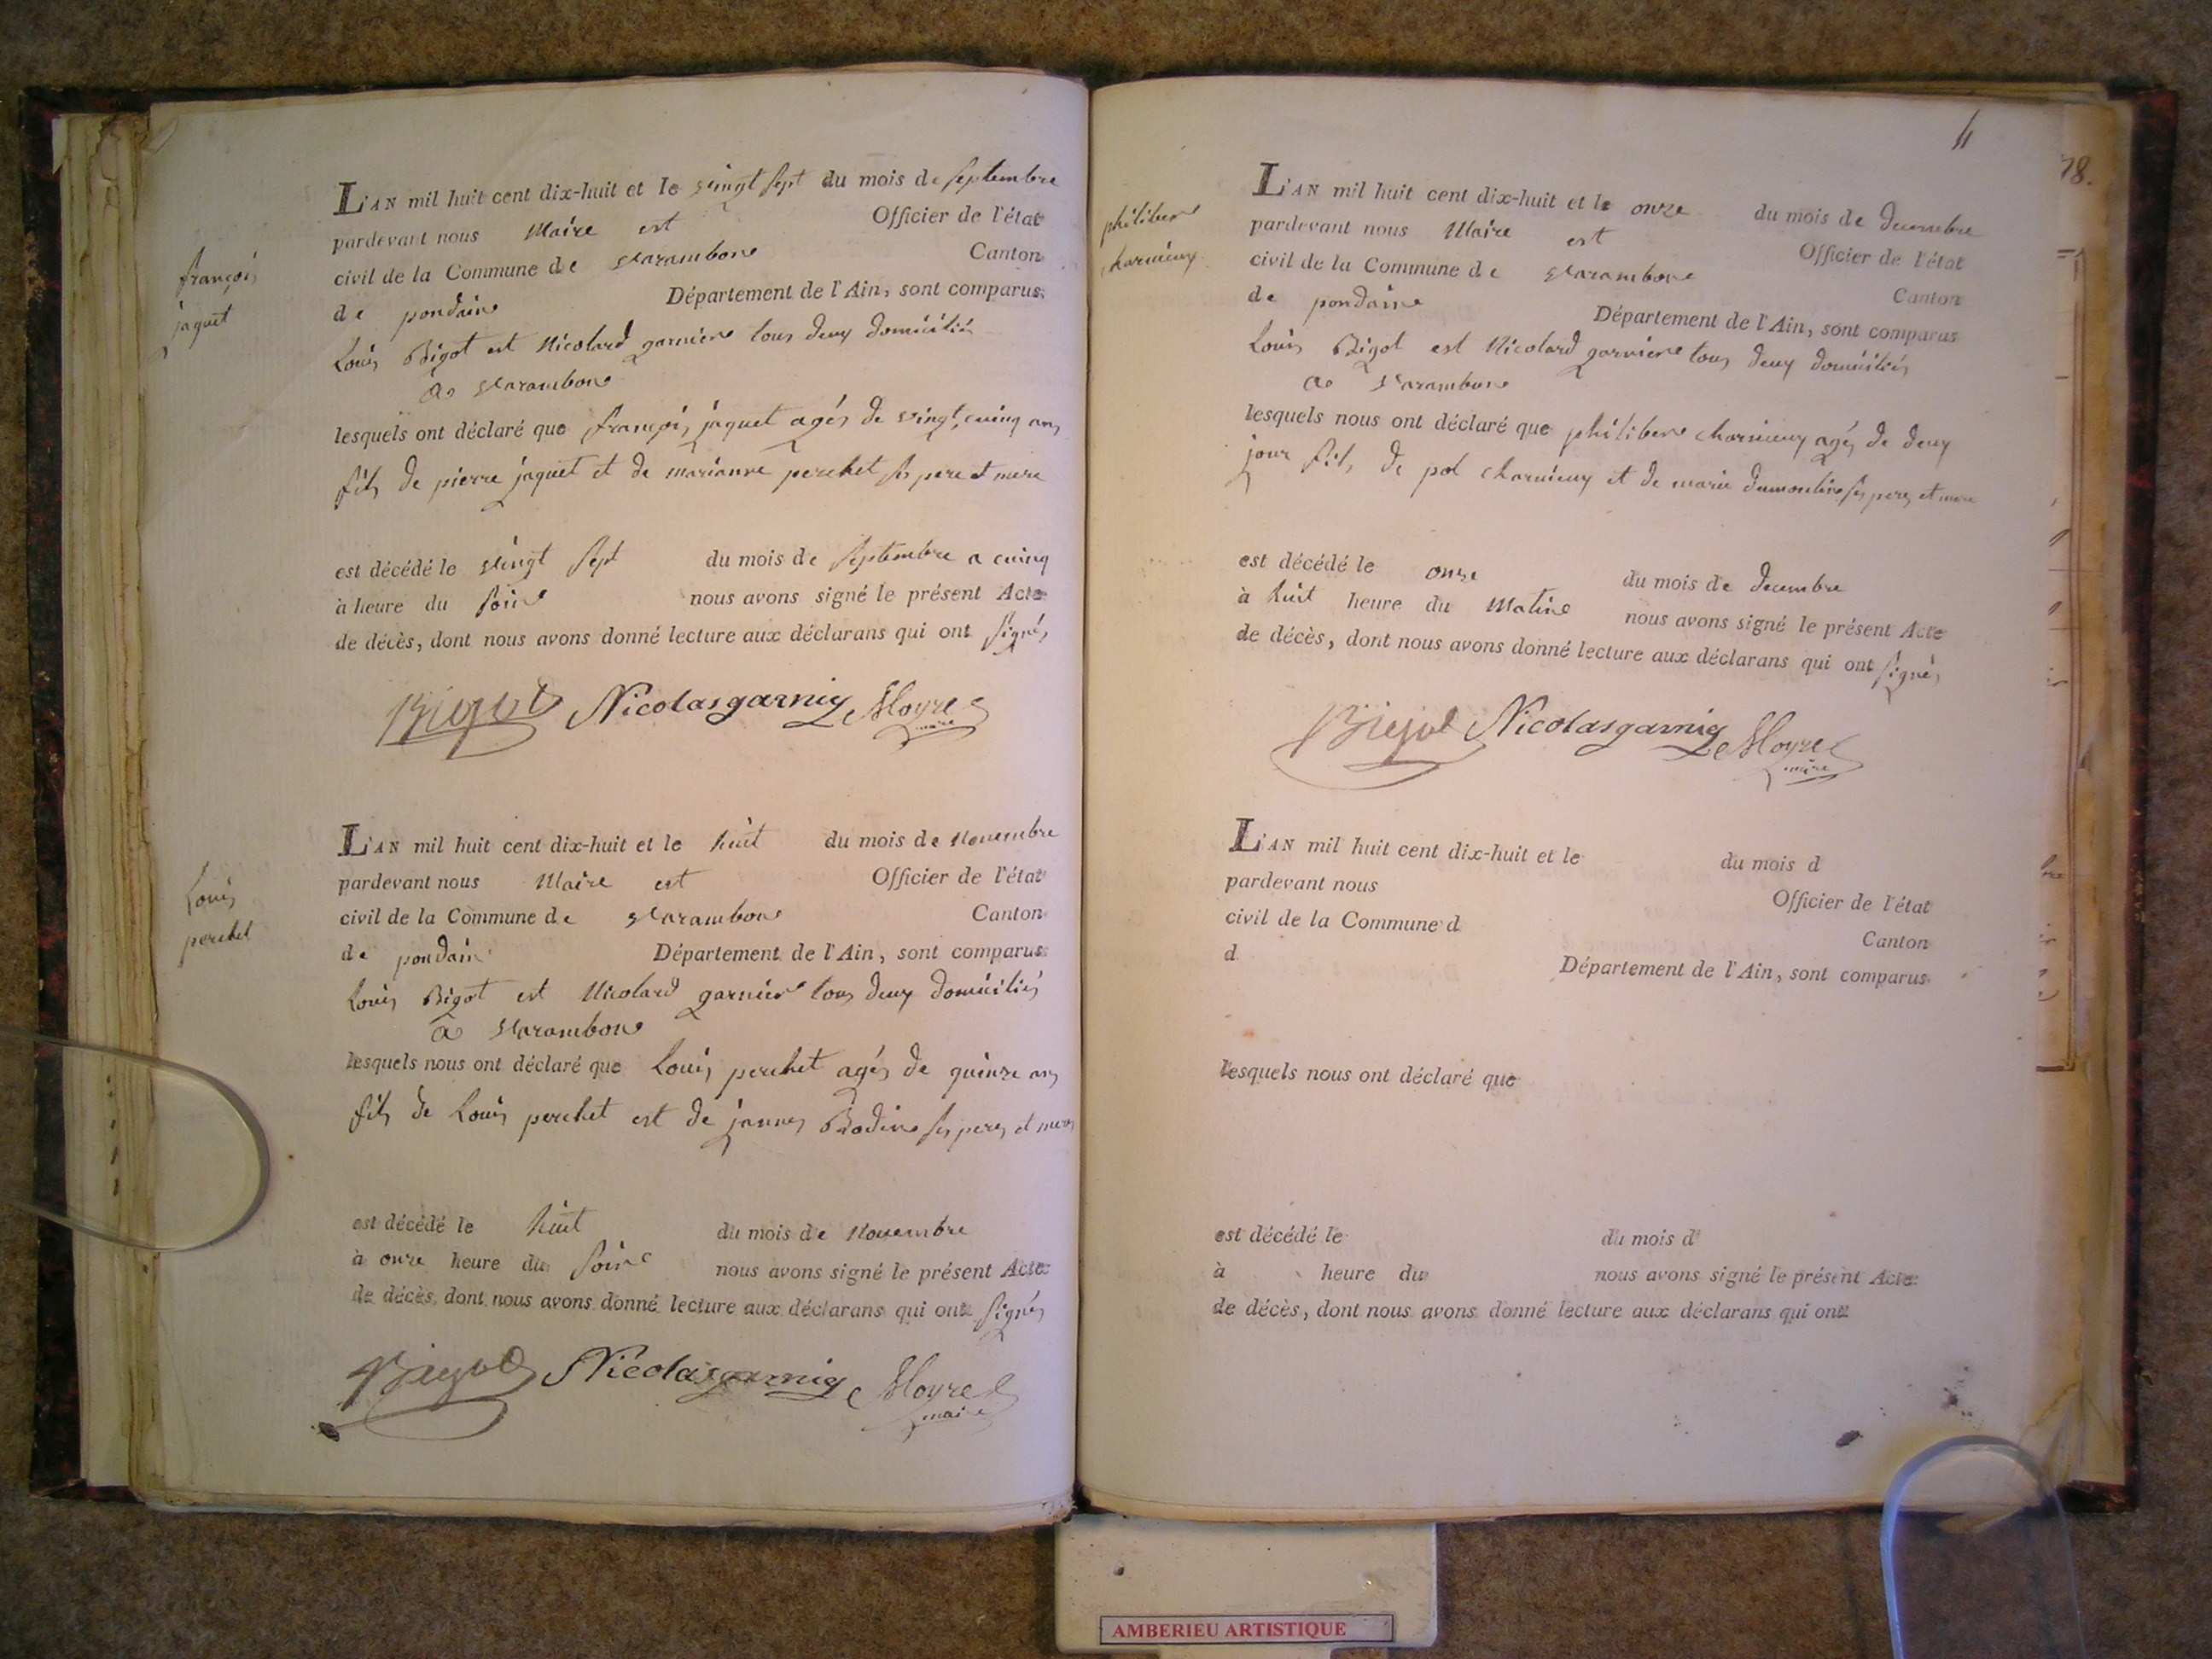 L'AN mil huit cent dix-huit et le vingt sept du mois de septembre
pardevant nous Maire est Officier de l'état
civil de la Commune de Varambone Canton
de pondain Département de l'Ain, sont comparus
Louis Bigot est Nicolard garnier tous deux domiciliés
a Varambone
françois
jaquet
lesquels ont déclaré que françois jaquet agés de vingt cuinq ans
fils de pierre jaquet et de marianne perchet ses pere et mere
est décédé le vingt sept du mois de septembre a cuinq
à heure du soire nous avons signé le présent Acte
de décès, dont nous avons donné lecture aux déclarans qui ont signés
Bigot Nicolas garnier Moyret
maire
L'AN mil huit cent dix-huit et le huit du mois de Novembre
pardevant nous Maire est Officier de l'état
civil de la Commune de Varambone Canton
de pondain Département de l'Ain, sont comparus
Louis Bigot est Nicolard garnier tous deux domiciliés
a Varambone
Louis
perchet
lesquels nous ont déclaré que Louis perchet agés de quinze ans
fils de Louis perchet est de jannes Bodin ses peres et meres
est décédé le huit du mois de Novembre
à onze heure du soire nous avons signé le présent Acte
de décès, dont nous avons donné lecture aux déclarans qui ont signés
Bigot Nicolas garnier Moyret
maire
78.
L'AN mil huit cent dix-huit et le onze du mois de decembre
pardevant nous Maire est Officier de l'état
civil de la Commune de Varambone Canton
de pondain Département de l'Ain, sont comparus
Louis Bigot est Nicolard garnier tous deux domiciliés
a Varambone
philiber
charnieux
lesquels nous ont déclaré que philiber charnieux agés de deux
jour fils de pol charnieux et de marie dumoulin ses peres et mere
est décédé le onze du mois de decembre
à huit heure du Matin nous avons signé le présent Acte
de décès, dont nous avons donné lecture aux déclarans qui ont signés
Bigot Nicolas garnier Moyret
maire
L'AN mil huit cent dix-huit et le du mois d
pardevant nous Officier de l'état
civil de la Commune d Canton
d Département de l'Ain, sont comparus
lesquels nous ont déclaré que
est décédé le du mois d
à heure du nous avons signé le présent Acte
de décès, dont nous avons donné lecture aux déclarans qui ont
AMBERIEU ARTISTIQUE